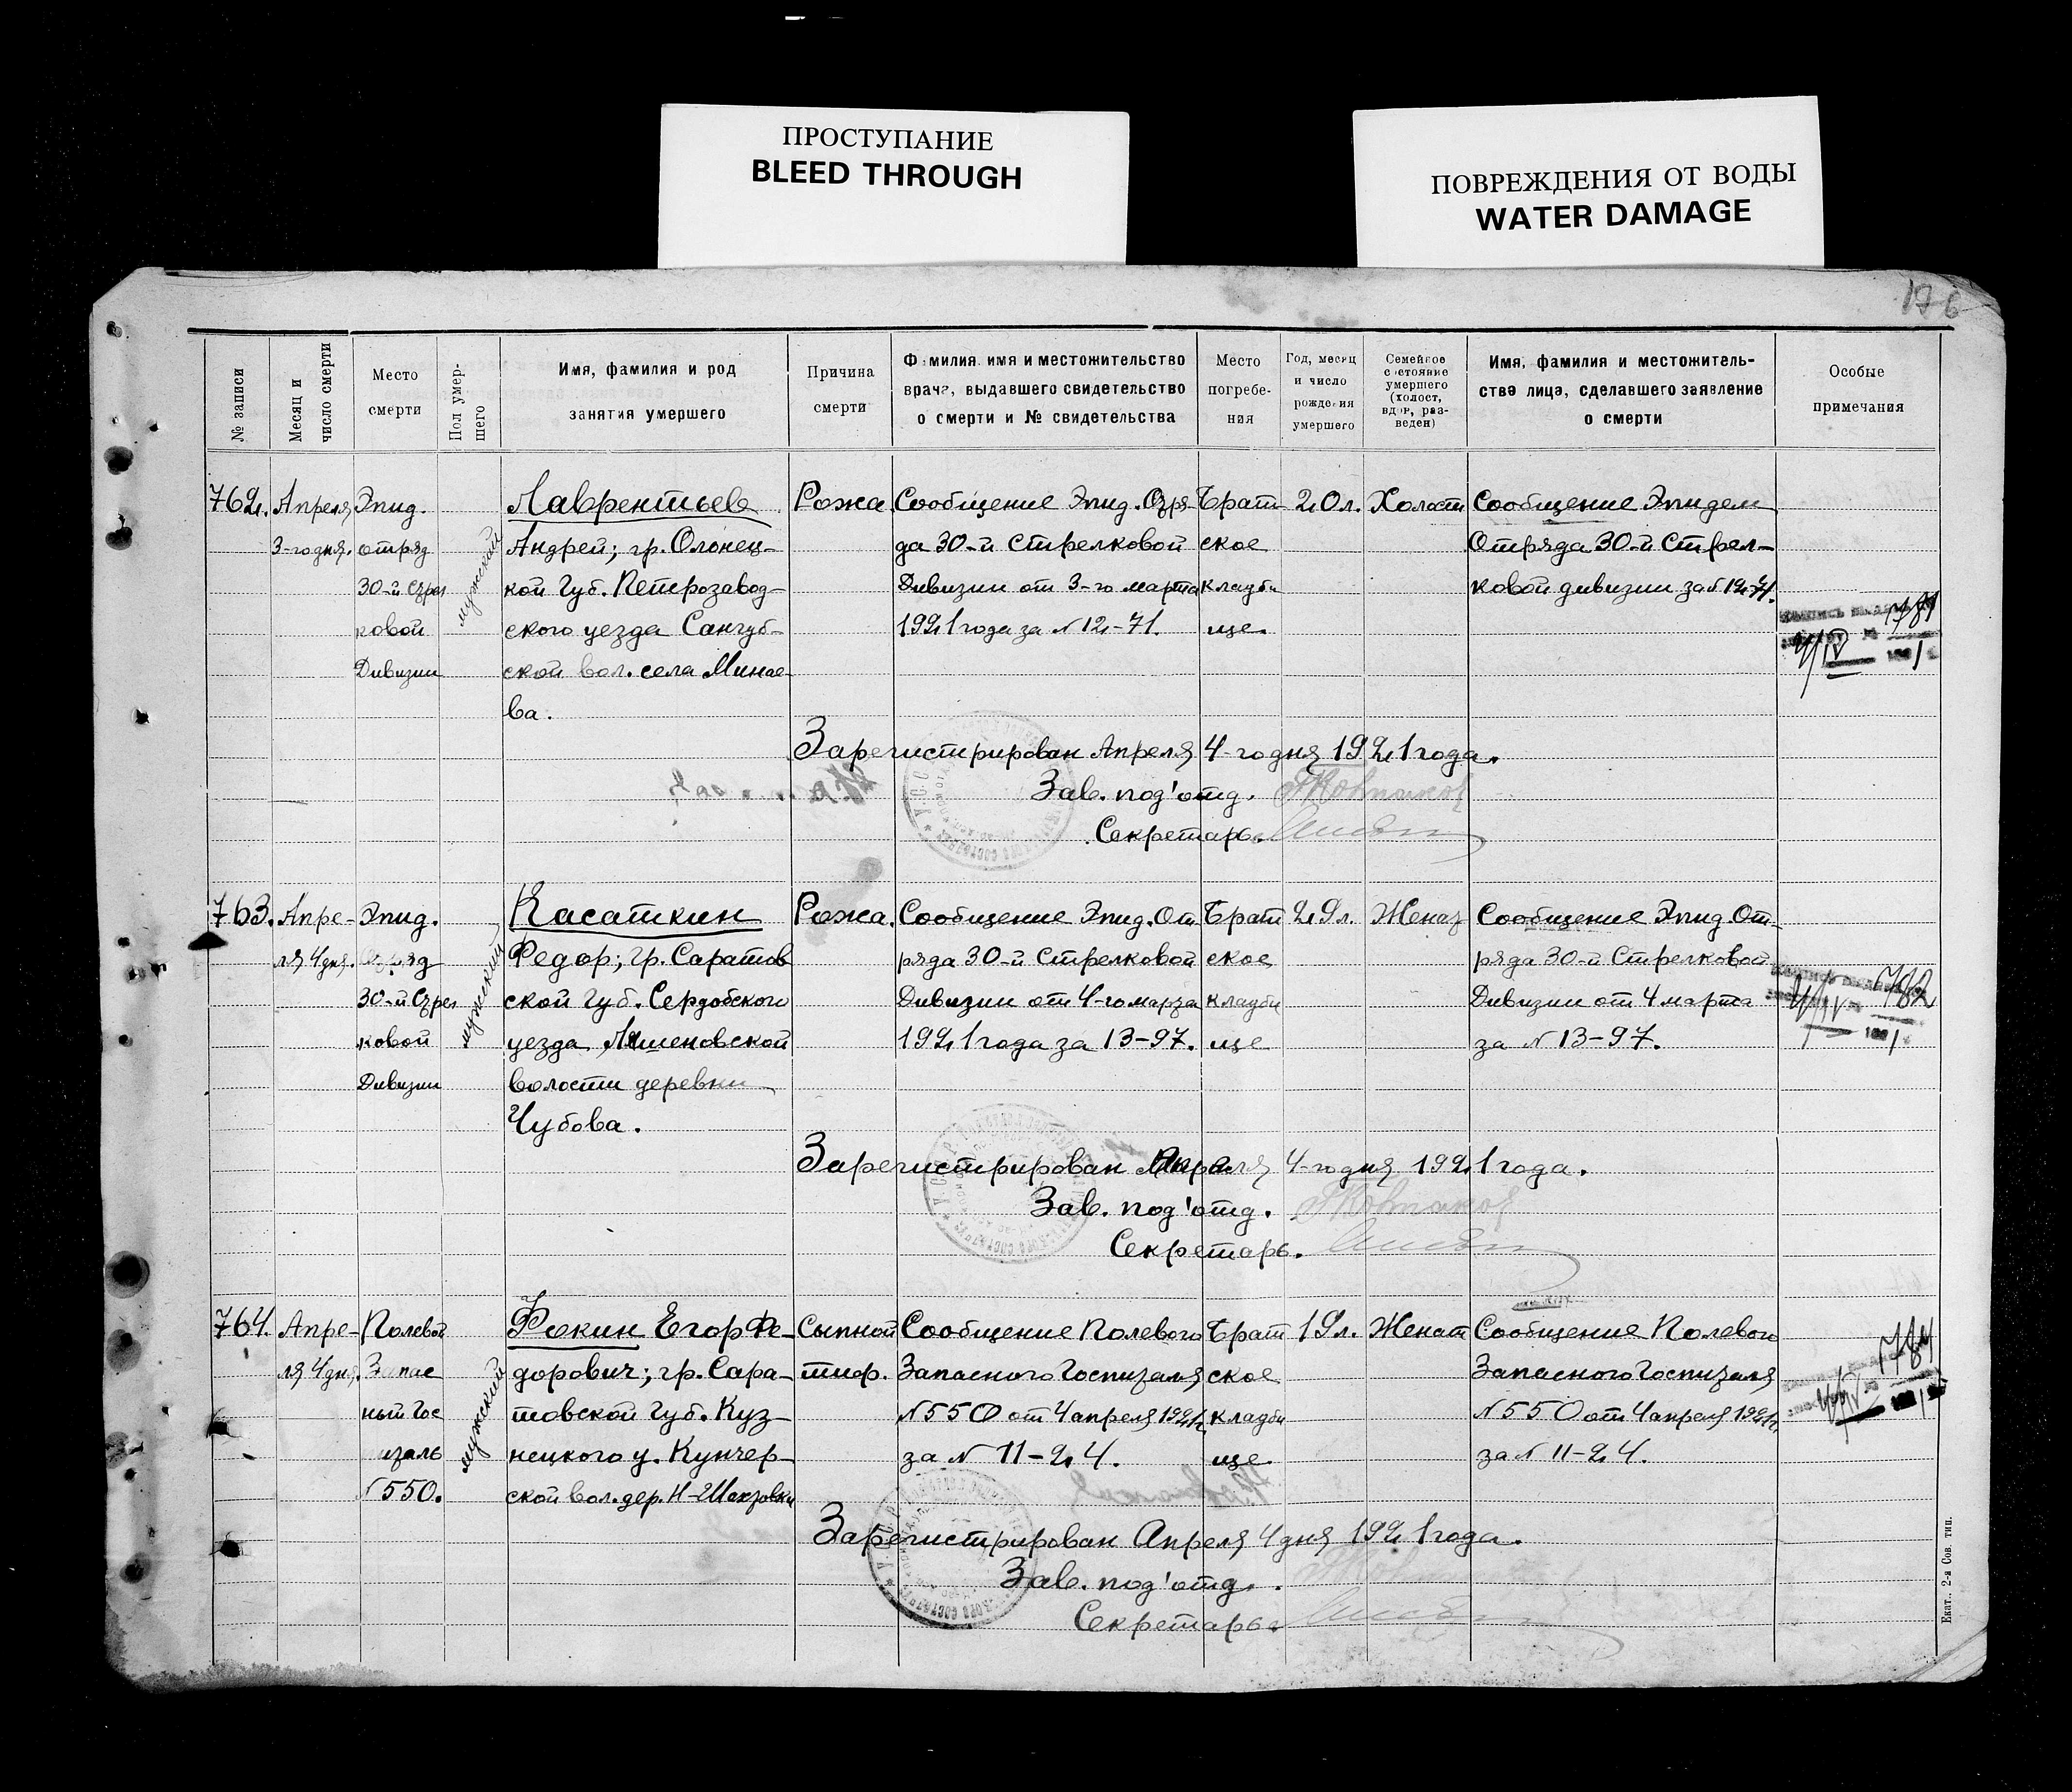 ПРОСТУПАНИЕ
BLEED THROUGH
ПОВРЕЖДЕНИЯ ОТ ВОДЫ
WATER DAMAGE
176
№ записи
Месяц и
число смерти
Место
смерти
Пол умер-
шего
Имя, фамилия и род
занятия умершего
Причина
смерти
Фамилия имя и местожительство
врача, выдавшего свидетельство
о смерти и № свидетельства
Место
погребе-
ния
Год, месяц
и число
рождения
умершего
Семейное
состояние
умершего
(холост,
вдов, раз-
веден)
Имя, фамилия и местожитель-
ства лица, сделавшего заявление
о смерти
Особые
примечания
762.
Апреля
3-го дня.
Эпид.
отряд
30-й Стрел
ковой
Дивизии
мужский
Лаврентьев
Андрей; гр. Олонец-
кой Губ. Петрозавод-
ского уезда Сангуб-
ской вол. села Минае-
ва.
Рожа
Сообщение Эпид. Отря-
да 30-й Стрелковой
Дивизии от 3-го марта
1921 года за № 12-71.
Брат
ское
кладби
ще
20 л.
Холост
Сообщение Эпидем
Отряда 30-й Стрел-
ковой дивизии за № 12-71.
781
Зарегистрирован Апреля 4-го дня 1921 года.
Зав. под'отд.
Секретарь.
763.
Апре-
ля 4 дня.
Эпид.
Отряд
30-й Стрел
ковой
Дивизии
мужский
Касаткин
Федор; гр. Саратов
ской Губ. Сердобского
уезда
волости деревни
Чубова.
Рожа.
Сообщение Эпид. От
ряда 30-й Стрелковой
Дивизии от 4-го марта
1921 года за 13-97.
Брат
ское
кладби
ще
29 л.
Женат
Сообщение Эпид От-
ряда 30-й Стрелковой
Дивизии от 4 марта
за № 13-97.
782
Зарегистрирован Апреля 4-го дня 1921 года.
Зав. под'отд.
Секретарь.
764.
Апре-
ля 4 дня.
Полевой
Запас
ный Гос
питаль
№ 550.
мужский
Фокин Егор Фе-
дорович; гр. Сара-
товской Губ. Куз-
нецкого у. Кунчер-
ской вол. дер. Н-Шахровки
Сыпной
тиф.
Сообщение Полевого
Запасного Госпиталя
№ 550 от 4 апреля 1921г.
за № 11-24.
Брат
ское
кладби
ще
19 л.
Женат
Сообщение Полевого
Запасного Госпиталя
№ 550 от 4 апреля 1921г.
за № 11-24.
784
Зарегистрирован Апреля 4 дня 1921 года.
Зав. под'отд.
Секретарь
Екат. 2-я Сов. тип.